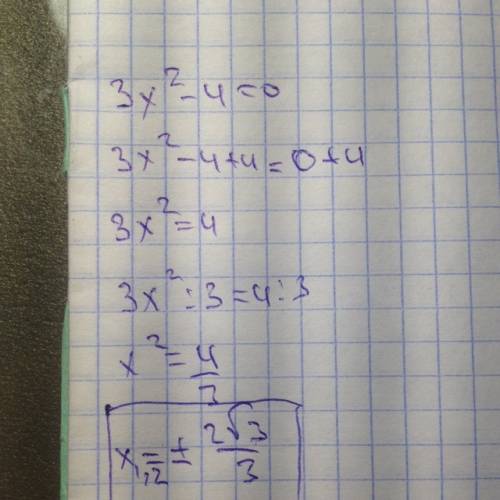 3x² - 4 = 0
3x² - 4 + 4 = 0 + 4
3x² = 4
3x² : 3 = 4 : 3
x² = 4/3
x₁,₂ = ± 2√3/3